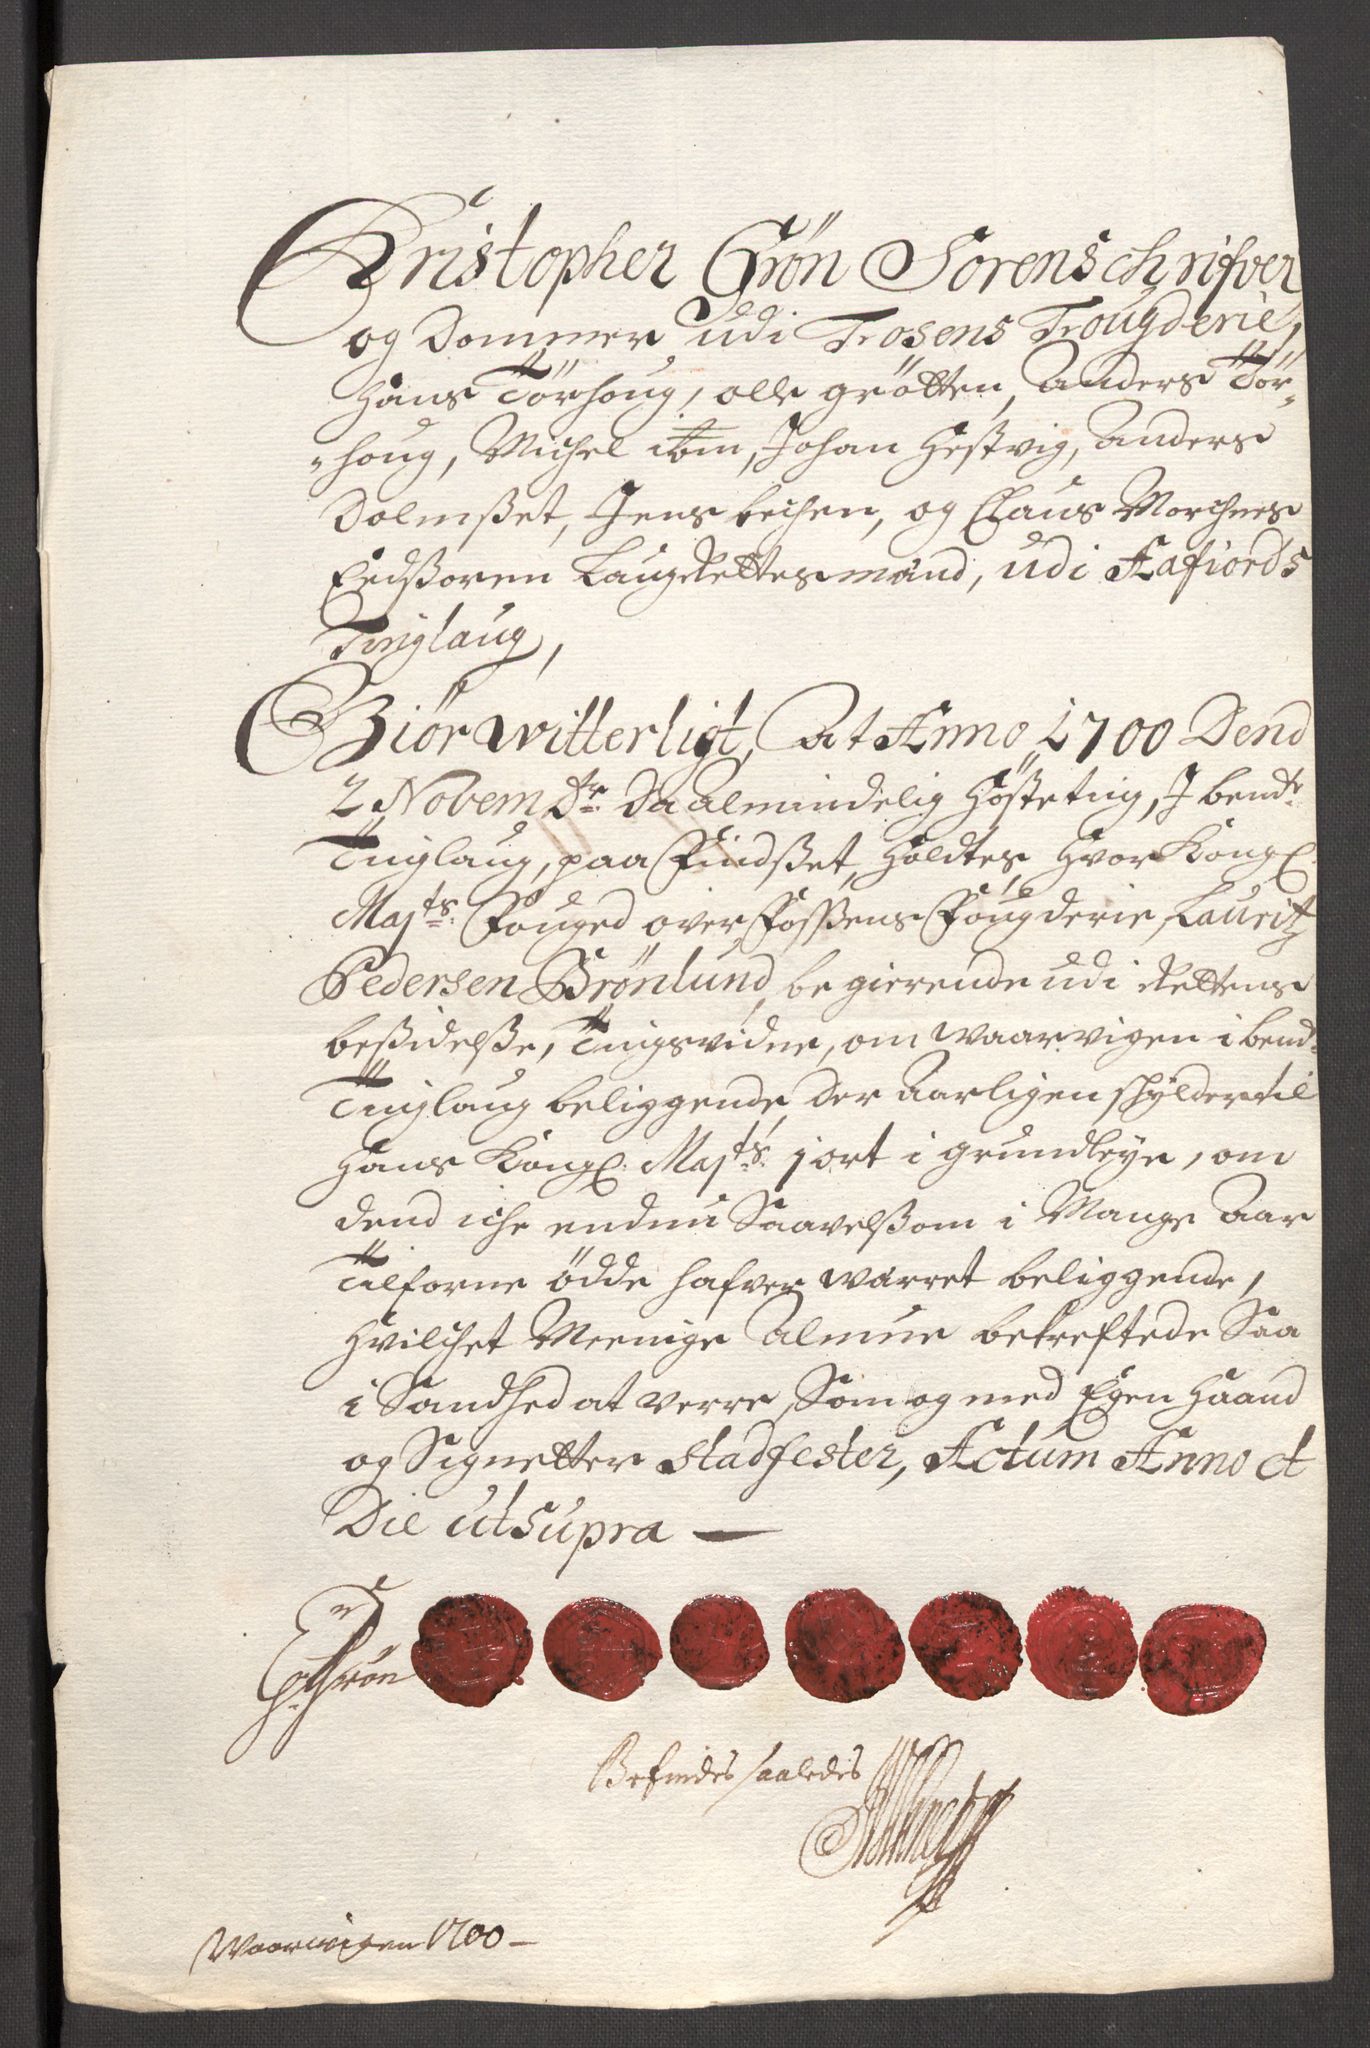 Christopher Grön Sorenschrifver
og Dommer udi Fosens Fougderie,
Hans Törhoug, olle grötten, Anders Tör-
-houg, Michel ibm, Johan Hestvig, Anders
Dolmßet, Jens bechen, og Claus Morchnes
Eedßoren LaugRettesmænd, udi Aafiords
Tinglaug,
Giör witterligt, At Anno 1700 Dend
2 Novembr: Da Almindelig Høsteting, J bendte
Tinglaug, paa Findßet, Holdtes, Hvor Kongl:
Majts: Fouged over Foßens Fougderie, Lauritz
Pedersen Brönlund, begierende udi Rettens
beßidelße, Tingsvidne, om Waarvigen i bendte
Tinglaug beliggende, der Aarligen schylder til
Hans Kongl: Majts: 1 ort i grundleye, om
dend iche endnu Saavelßom i Mange Aar
Tilforne ödde hafver wærret beliggende,
Hvilchet Meenige Almue bekreftede Saa
i Sandhed at verre, Som og med Egen Haand
og Signetter Stadfester, Actum Anno et
Die utsupra —
Chr Grön
Befindes saaledes
Waarwigen 1700 –